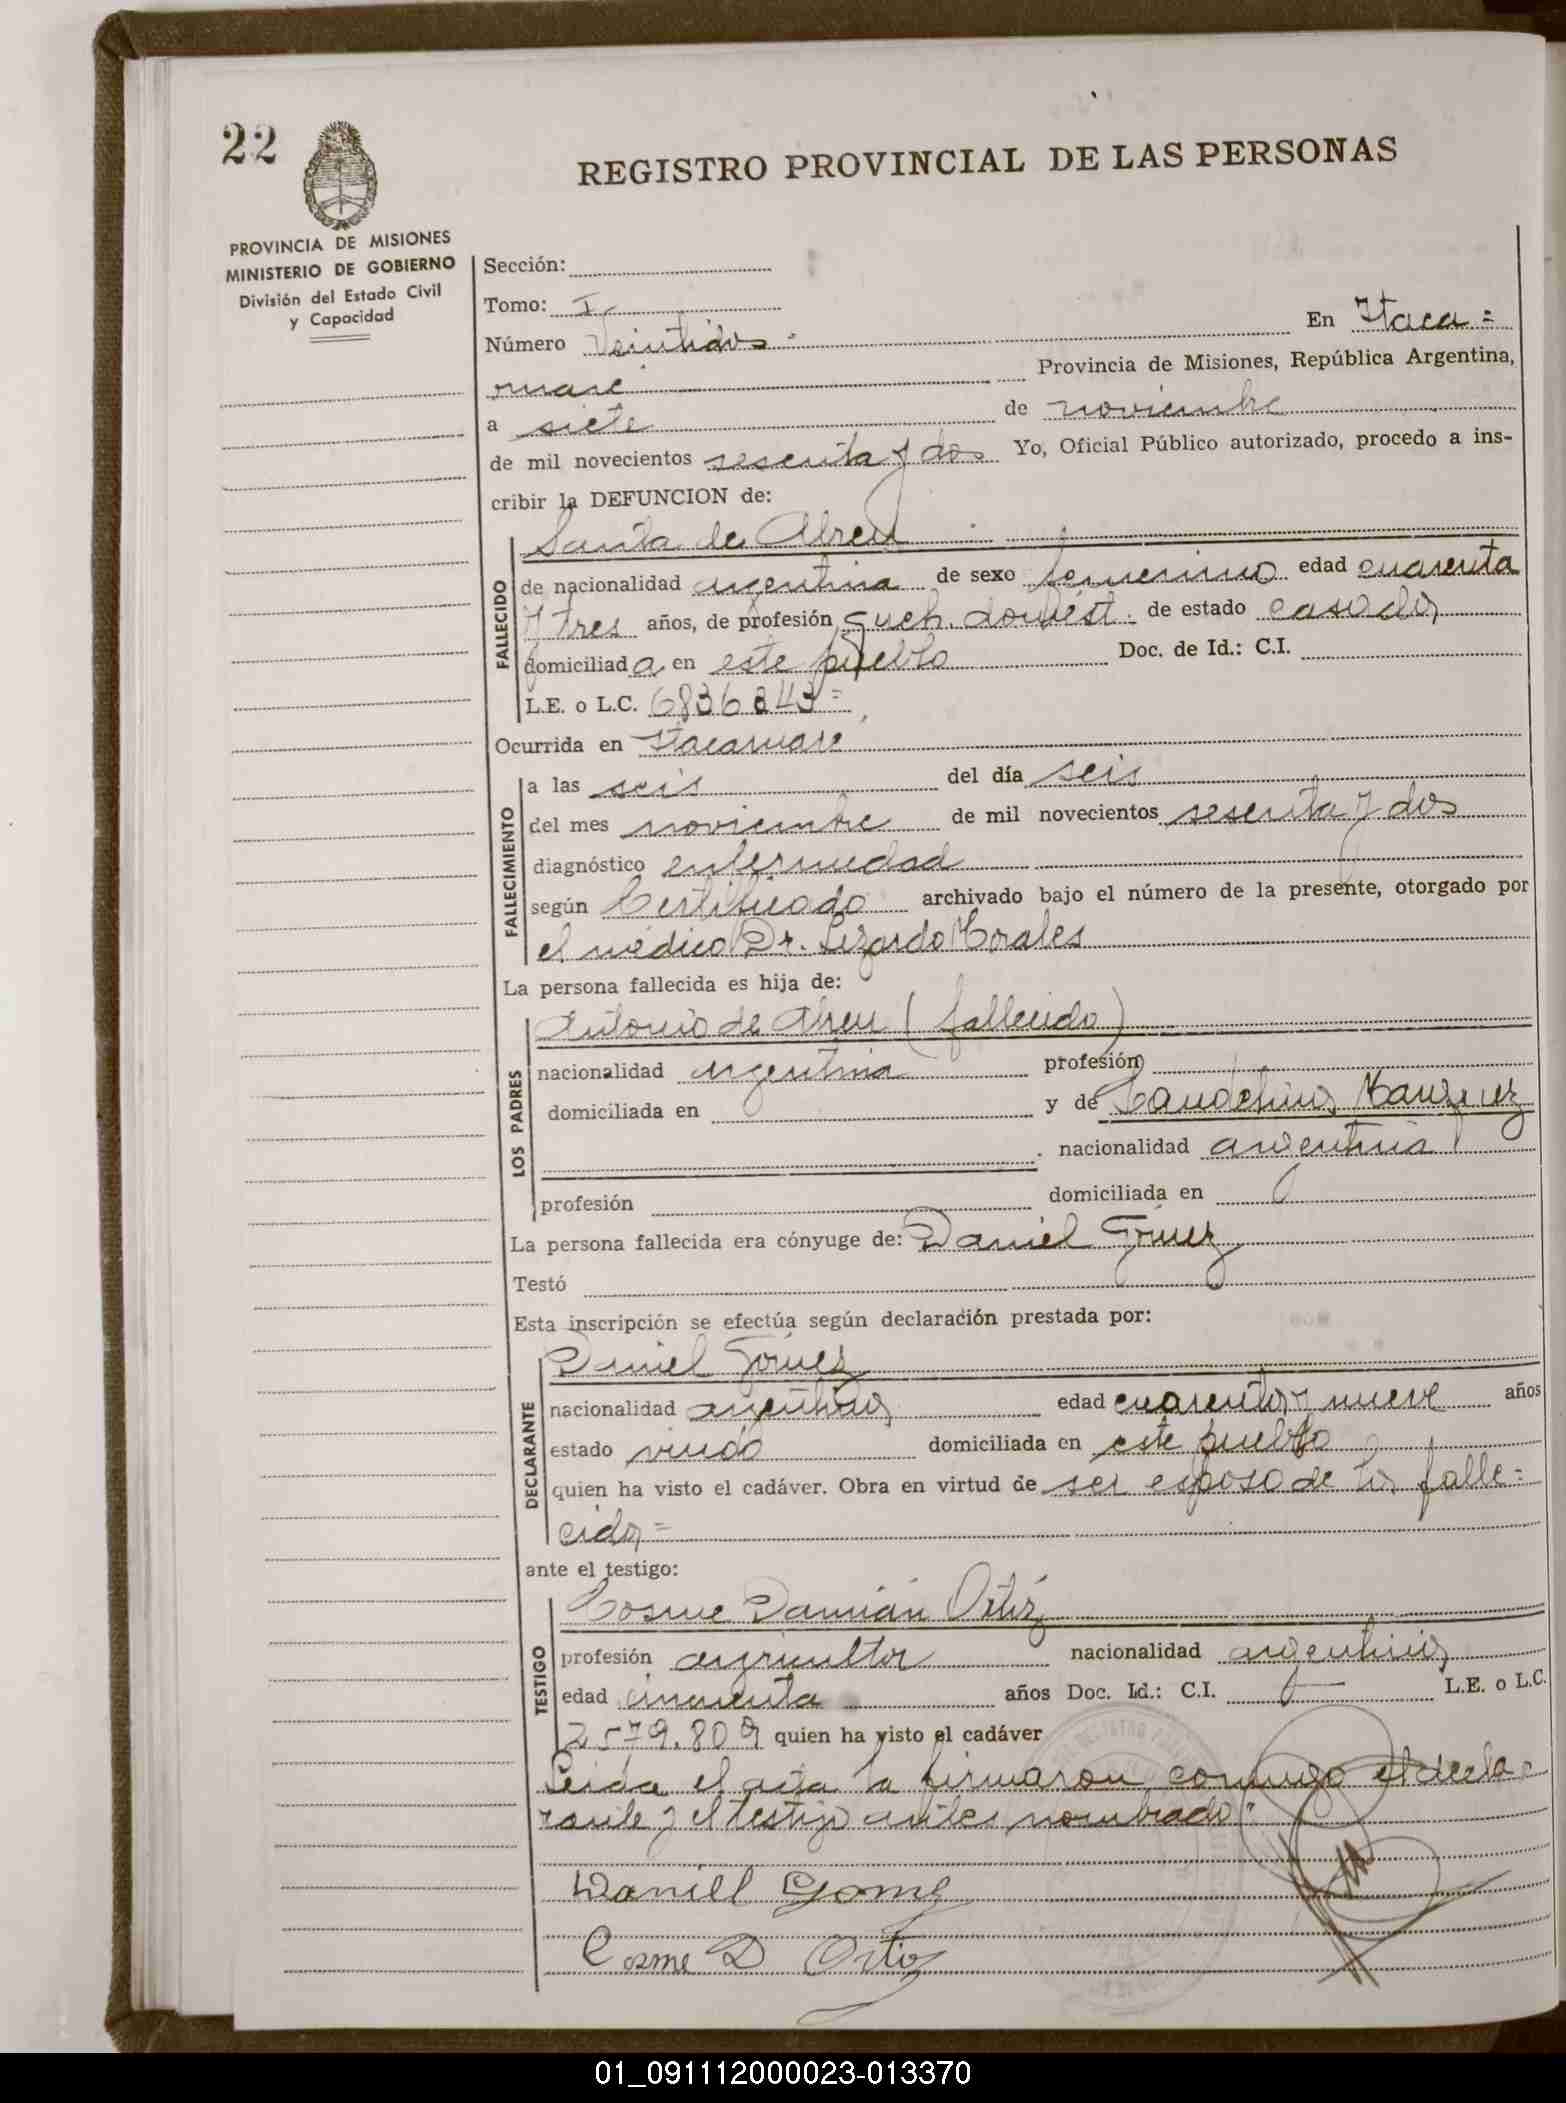 22
REGISTRO PROVINCIAL DE LAS PERSONAS
PROVINCIA DE MISIONES
MINISTERIO DE GOBIERNO
División del Estado Civil
y Capacidad
Sección:
Tomo: I
Número Veintidos En Itaca=
ruaré Provincia de Misiones, República Argentina,
a siete de noviembre
de mil novecientos sesenta y dos Yo, Oficial Público autorizado, procedo a ins-
cribir la DEFUNCION de:
FALLECIDO
Santa de Abreu
de nacionalidad argentina de sexo femenino edad cuarenta
y tres años, de profesión queh. domést. de estado casada
domiciliada en este pueblo Doc. de Id.: C.I.
L.E. o L.C. 6836843=
Ocurrida en Itacaruaré
FALLECIMIENTO
a las seis del día seis
del mes noviembre de mil novecientos sesenta y dos
diagnóstico enfermedad
según Certificado archivado bajo el número de la presente, otorgado por
el médico Dr. Lizardo Morales
La persona fallecida es hija de:
LOS PADRES
Antonio de Abreu (fallecido)
nacionalidad argentina profesión
domiciliada en y de
nacionalidad argentina
profesión domiciliada en
La persona fallecida era cónyuge de: Daniel Gómez
Testó
Esta inscripción se efectúa según declaración prestada por:
DECLARANTE
Daniel Gómez
nacionalidad argentina edad cuarenta y nueve años
estado viudo domiciliada en este pueblo
quien ha visto el cadáver. Obra en virtud de ser esposo de la falle=
cida=
ante el testigo:
TESTIGO
Cosme Damián Ortiz
profesión agricultor nacionalidad argentina
edad cincuenta años Doc. Id.: C.I. — L.E. o L.C.
2579.809 quien ha visto el cadáver
Leida el acta la firmaron conmigo el decla=
rante y el testigo antes nombrado=
Daniel Gomez
Cosme D Ortiz
01_091112000023-013370